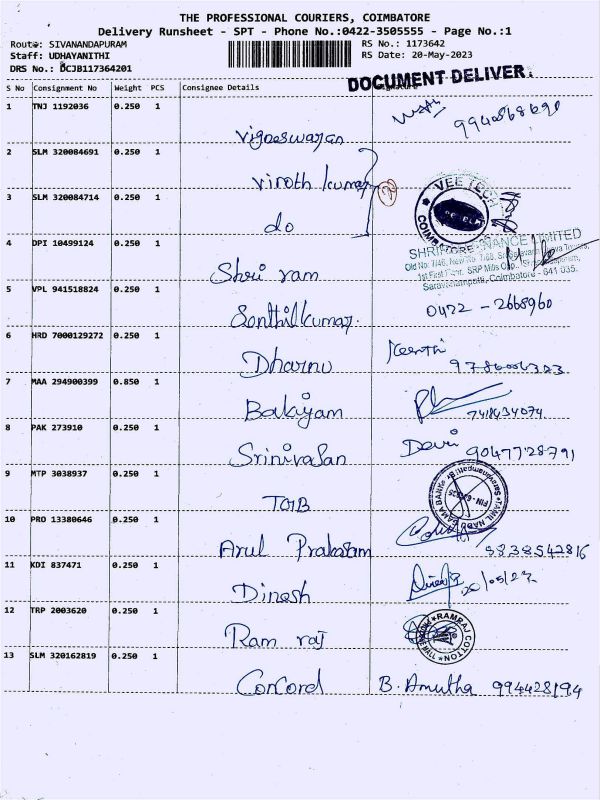 THE PROFESSIONAL COURIERS, COIMBATORE
Delivery Runsheet - SPT - Phone No.:0422-3505555 - Page No.:1
Route: SIVANANDAPURAM
RS No.: 1173642
Staff: UDHAYANITHI
RS Date: 20-May-2023
DRS No.: DCJB117364201
DOCUMENT DELIVER.
S No Consignment No Weight PCS Consignee Details
1 TNJ 1192036 0.250 1
Vigneswaran 9940868690
2 SLM 320084691 0.250 1
Viroth kumar
VEE TECH
COIMBATORE
3 SLM 320084714 0.250 1
do
4 DPI 10499124 0.250 1
Shri ram
SHRIRAM FINANCE LIMITED
Saravanampatti, Coimbatore - 641 035.
5 VPL 941518824 0.250 1
Senthilkumar. 0422 - 2668960
6 HRD 7000129272 0.250 1
Dharnu Keerthi
7 MAA 294900399 0.850 1
Balayam 7418434074
8 PAK 273910 0.250 1
Srinivasan Devi 9047728791
9 MTP 3038937 0.250 1
TMB
10 PRO 13380646 0.250 1
Arul Prakasam 9838542816
11 KDI 837471 0.250 1
Dinesh 20/05/23
12 TRP 2003620 0.250 1
Ram raj
RAMRAJ COTTON
13 SLM 320162819 0.250 1
Concord B. Amutha 994428194